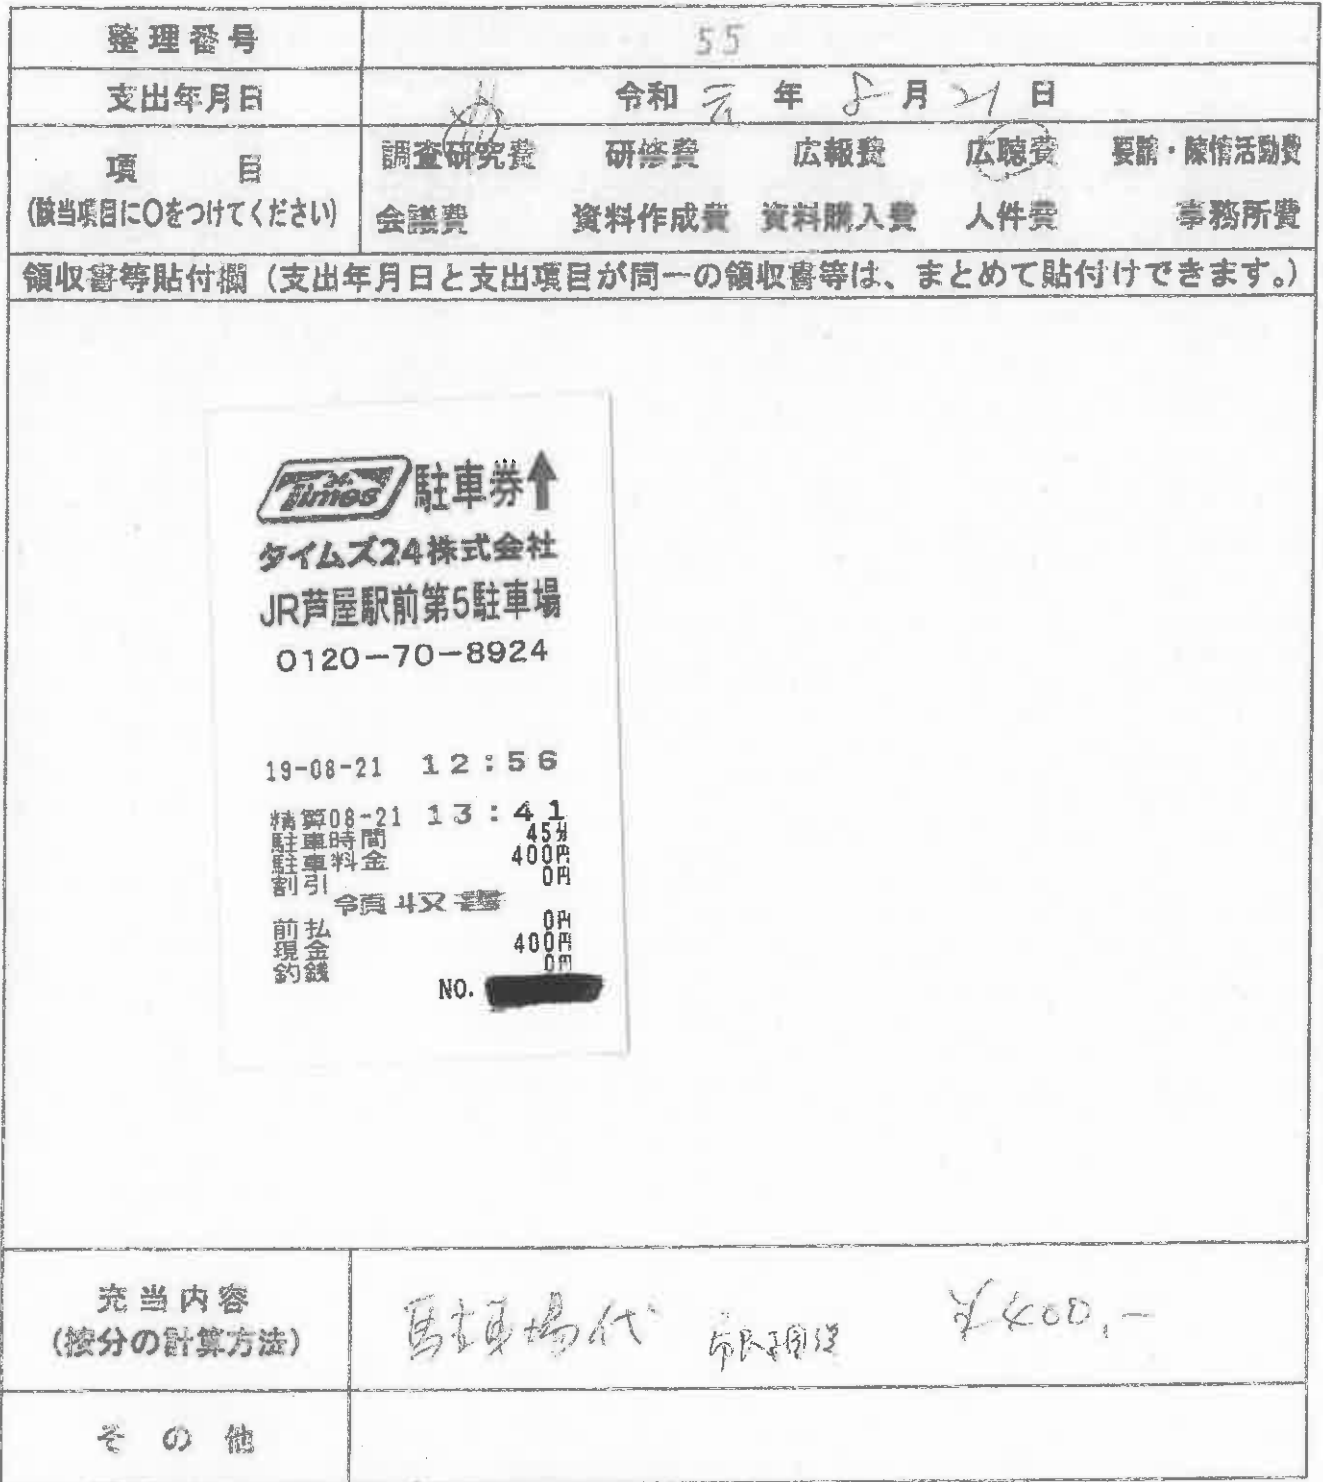 整理番号 55
支出年月日 令和 元 年 8 月 21 日
項 目
(該当項目に○をつけてください)
調査研究費 研修費 広報費 広聴費 要請・陳情活動費
会議費 資料作成費 資料購入費 人件費 事務所費
領収書等貼付欄(支出年月日と支出項目が同一の領収書等は、まとめて貼付けできます。)
Times 24 駐車券↑
タイムズ24株式会社
JR芦屋駅前第5駐車場
0120-70-8924
19-08-21 12:56
精算08-21 13:41
駐車時間 45分
駐車料金 400円
割引 0円
領収書
前払 0円
現金 400円
釣銭 0円
NO.
充当内容
(按分の計算方法)
駐車場代 市民相談 ¥400,-
その他